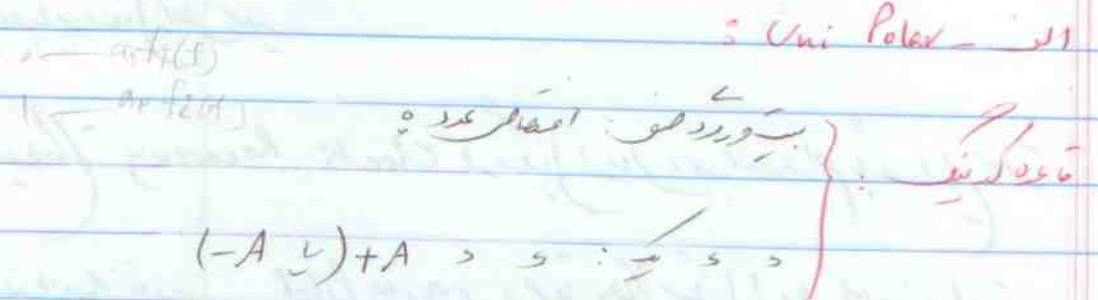 الف - Uni Polar :
قاعده کدینگ : بیت ورودی صفر : اختصاص عدد 0
د د یک : د د +A (یا -A)